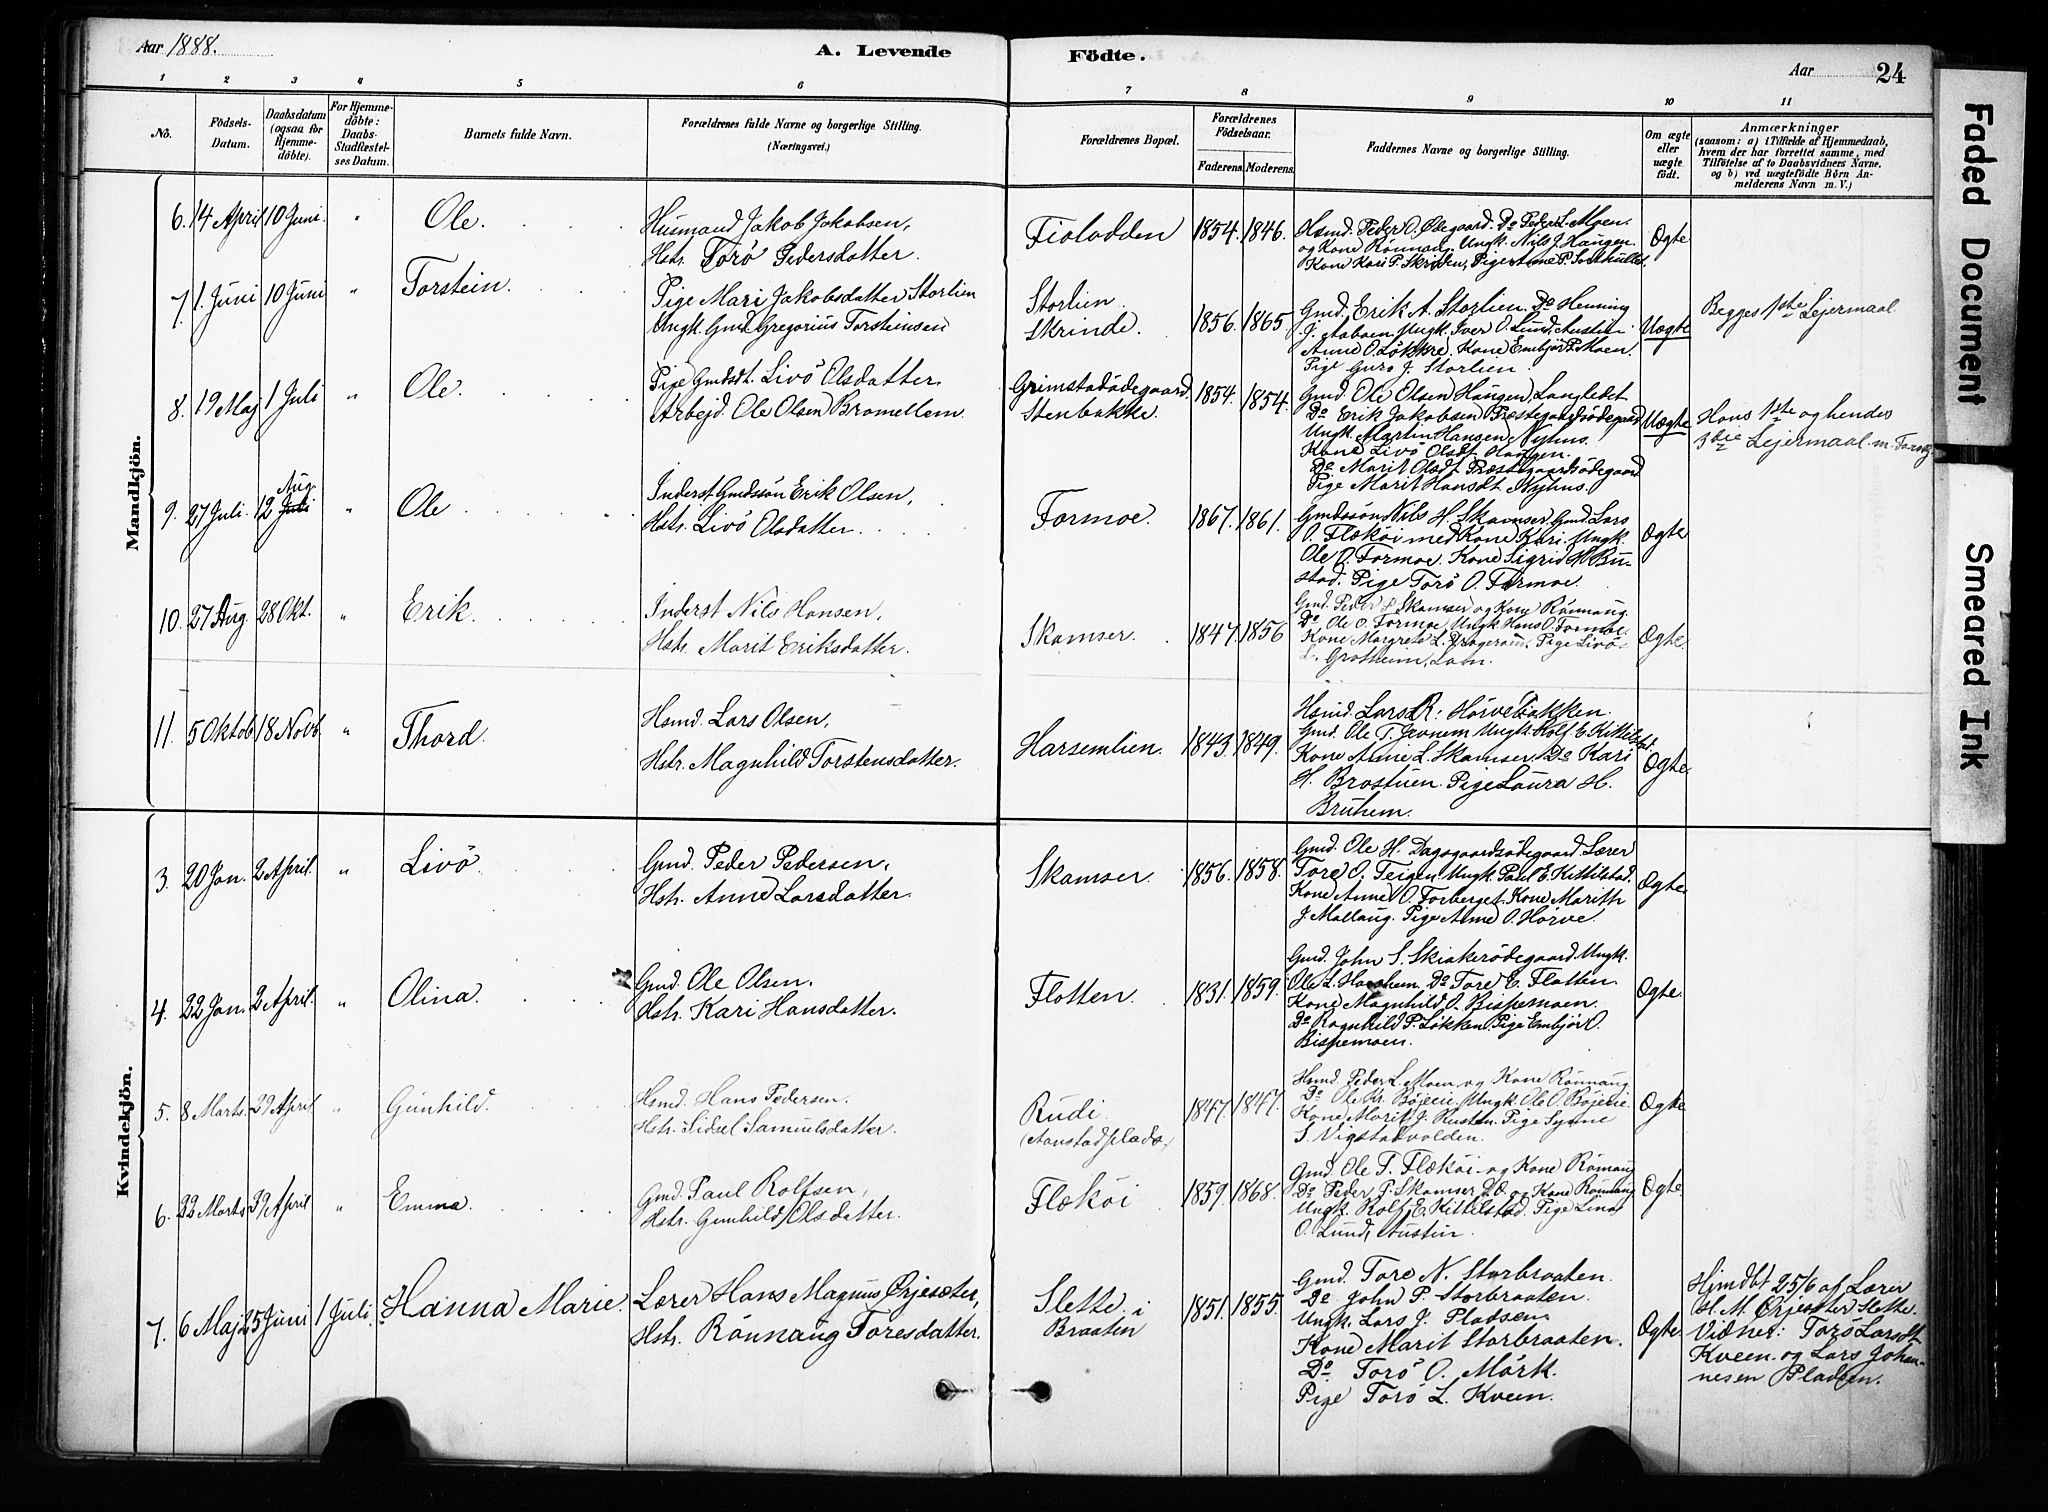 Aar 1888.
A. Levende Födte.
Aar 24
1 2 3 4 5 6 7 8 9 10 11
No.
Födsels-Datum.
Daabsdatum (ogsaa for Hjemme-döbte).
For Hjemme-döbte: Daabs-Stadfæstel-ses Datum.
Barnets fulde Navn.
Forældrenes fulde Navne og borgerlige Stilling.
(Næringsvei.)
Forældrenes Bopæl.
Forældrenes Födselsaar.
Faderens. Moderens.
Faddernes Navne og borgerlige Stilling.
Om ægte eller uægte födt.
Anmærkninger
(saasom: a) i Tilfælde af Hjemmedaab,
hvem der har forrettet samme, med
Tilföielse af to Daabsvidners Navne,
og b) ved uægtefödte Börn An-
melderens Navn m. V.)
Mandkjön.
6. 14 April 10 Juni. " Ole.
Husmand Jakob Jakobsen,
Hstr. Torö Pedersdatter.
1854. 1846.
Hsmd. Peder O. Ødegaard. Do Peder L. Moen.
og Kone Rönnaug. Ungk. Nils J. Haugen.
Kone Kari P. Skridden,
Ægte
7. 1 Juni 10 Juni " Torstein.
Pige Mari Jakobsdatter Storlien
Ungk. Gmd. Gregorius Torsteinsen
Storlien
Skrinde.
1856. 1865.
Gmd. Erik A. Storlien. Do Henning
Ungk. Iver O. Lund, Austin.
Anne O. Lökkre. Kone Embjör P. Moen.
Pige Guro J. Storlien.
Uægte
Begges 1ste Lejermaal
8. 19 Maj 1 Juli " Ole.
Pige Gmdsdt. Livö Olsdatter
Arbejd. Ole Olsen Bramellem.
Grimstadödegaard.
Stenbakke.
1854. 1854.
Gmd. Ole Olsen Haugen, Langledet
Do Erik Jakobsen Præstegaardsödegaard
Ungk. Martin Hansen Nyhus.
Kone Livö Olsdt. Haugen.
Do Marit Olsdt. Præstegaardsödegaard
Pige Marit Hansdt. Nyhus.
Uægte
Hans 1ste og hendes
3die Lejermaal m.
9. 27 Juli. 12 Juli Aug " Ole
Inderst Gmdssön Erik Olsen,
Hstr. Livö Olsdatter.
Formoe. 1867. 1861.
Gmdssön Nils H. Skamser. Gmd. Lars
O. Flækøi med Kone Kari. Ungk.
Ole O. Formoe. Kone Sigrid H. Bu-
stad. Pige Torö O. Formoe.
Ægte
10. 27 Aug. 28 Okt. " Erik.
Inderst Nils Hansen,
Hstr. Marit Eriksdatter.
Skamser. 1847. 1856
Gmd. Peder Skamser og Kone Rönnaug.
Do Ole O. Formoe, Ungk Hans O. Formoe.
Kone Margrete L. Pige Livö
L. Grotheim, Lom.
Ægte.
11. 5 Oktob 18 Novb " Thord.
Hsmd. Lars Olsen,
Hstr. Magnhild Torstensdatter.
Harsemlien. 1843. 1849.
Hsmd. Lars R. Hörvebakken.
Gmd. Ole T. Jevnem Ungk. Rolf. E. Kittilstad.
Kone Anne L. Skamser. Do Kari
H. Brostuen. Pige Laura H.
Bruhem.
Ægte.
Kvindekjön.
3. 20 Jan. 2 April. " Livö
Gmd. Peder Pedersen,
Hstr. Anne Larsdatter.
Skamser. 1856. 1858.
Gmd. Ole H. Dagsgaardsödegaard. Lærer
Tore O. Teigen. Ungk. Paul E. Kittilstad.
Kone Anne O. Forberget. Kone Marith
J. Mallaug. Pige Anne O. Hörve.
Ægte.
4. 22 Jan. 2 April. " Olina.
Gmd Ole Olsen.
Hstr. Kari Hansdatter.
Flotten. 1831. 1859.
Gmd. John S. Skiakerödegaard. Ungk.
Do Tore E. Flotten.
Kone Magnhild O. Bispemoen.
Do Ragnhild P. Løkken. Pige Embjör O.
Bispemoen.
Ægte.
5. 8 Marts. 29 April. " Gunhild.
Hsmd. Hans Pedersen.
Hstr. Sidsel Samuelsdatter.
Rudi.
(Aanstadplads.)
1847. 1847.
Hsmd. Peder L. Moen og Kone Rönnaug
Kone Marit J. Rusten. Pige Synne
S. Vigstadvolden.
Ægte
6. 22 Marts 29 April " Emma.
Gmd. Paul Rolfsen,
Hstr. Gunhild Olsdatter.
Flækøi 1859. 1868.
Gmd. Ole T. Flækøi og Kone Rönnaug
Do Peder P. Skamser og Kone Rönnaug
Ungk. Rolf E. Kittilstad. Pige Lina
O. Lund, Austin.
Ægte.
7. 6 Maj 25 Juni 1 Juli. Hanna Marie.
Lærer Hans Magnus Ørjesæter,
Hstr. Rönnaug Toresdatter.
Slette i
Braaten
1851. 1855.
Gmd. Tore N. Storbraaten.
Do John P. Storbraaten.
Ungk. Lars J. Pladsen
Kone Marit Storbraaten.
Do Torö O. Mörk.
Pige Torö L. Kveen.
Ægte.
Hjmdbt 25/6 af Lærer
H. M. Ørjesæter Slette.
Vidner: Torö Larsdt
Kveen og Lars Johan-
nesen Pladsen.
Faded Document
Smeared Ink